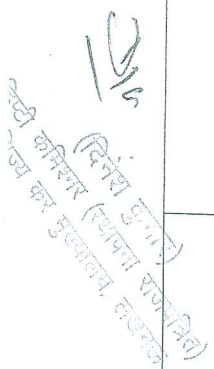 (दिनेश कुमार)
कमिश्नर (स्थापना राजपत्रित)
कर मुख्यालय, लखनऊ